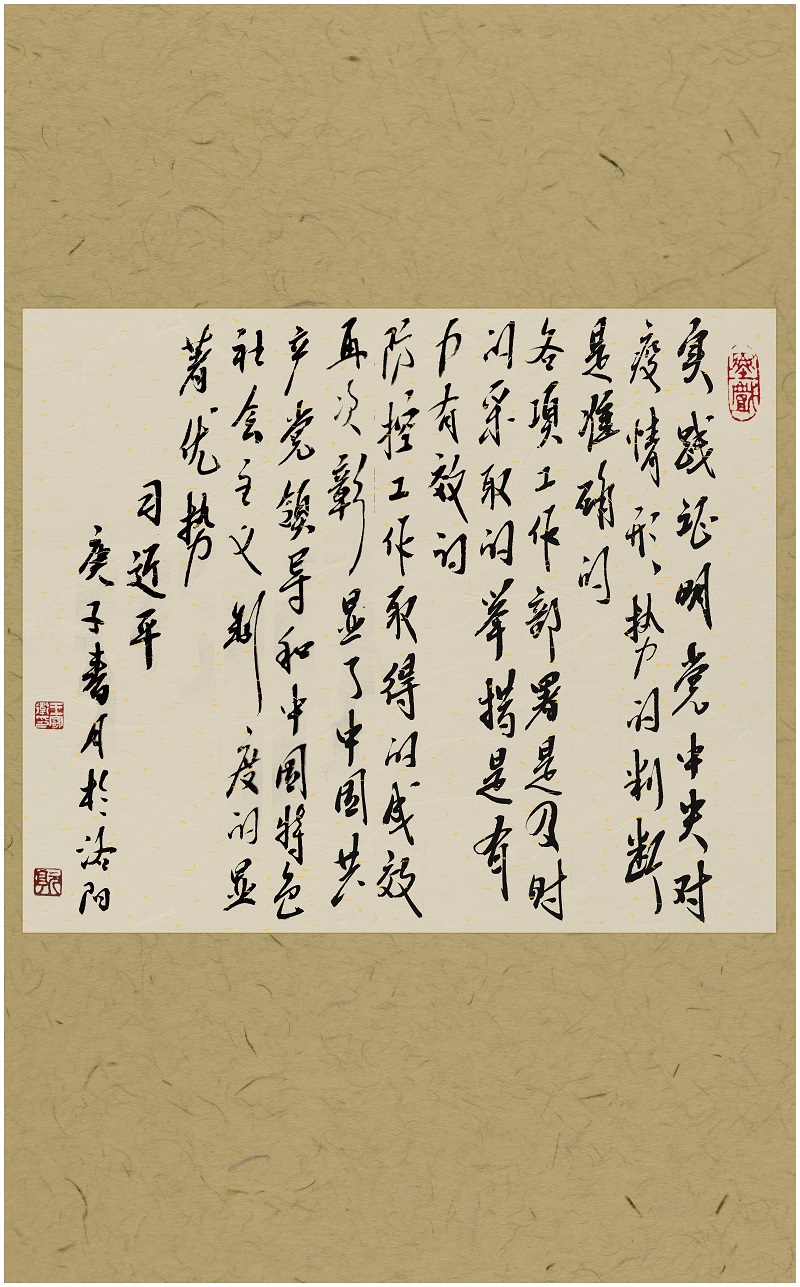 实践证明党中央对
疫情形势的判断
是准确的
各项工作部署是及时
的采取的举措是有
力有效的
防控工作取得的成效
再次彰显了中国共
产党领导和中国特色
社会主义制度的显
著优势
习近平
庚子春月于洛阳